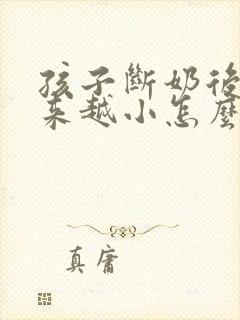 孩子斷奶後
來越小怎麼
真庸